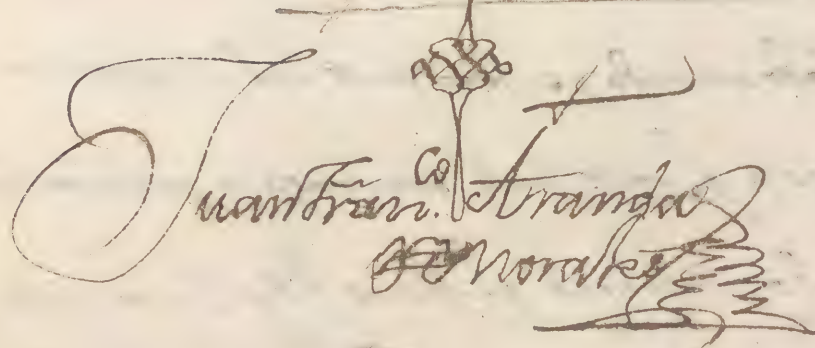 Juan Fran.co Aranda
Morales